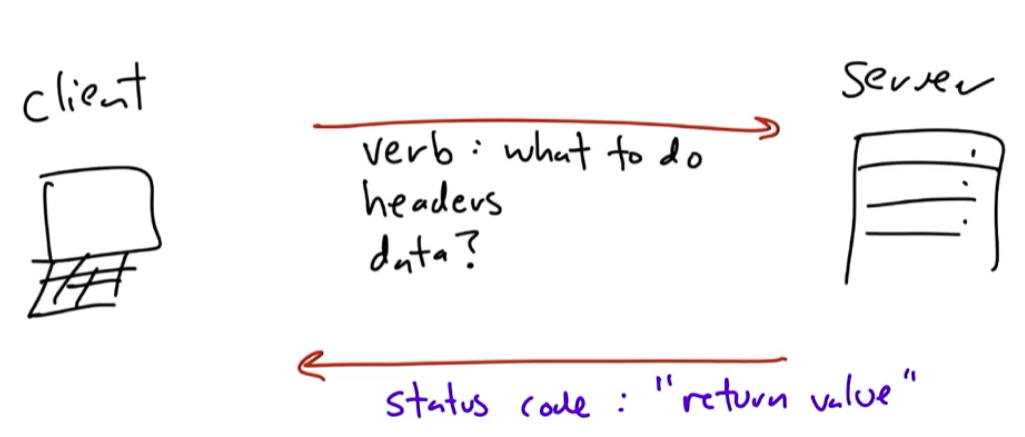 client
server
verb : what to do
headers
data?
status code : "return value"